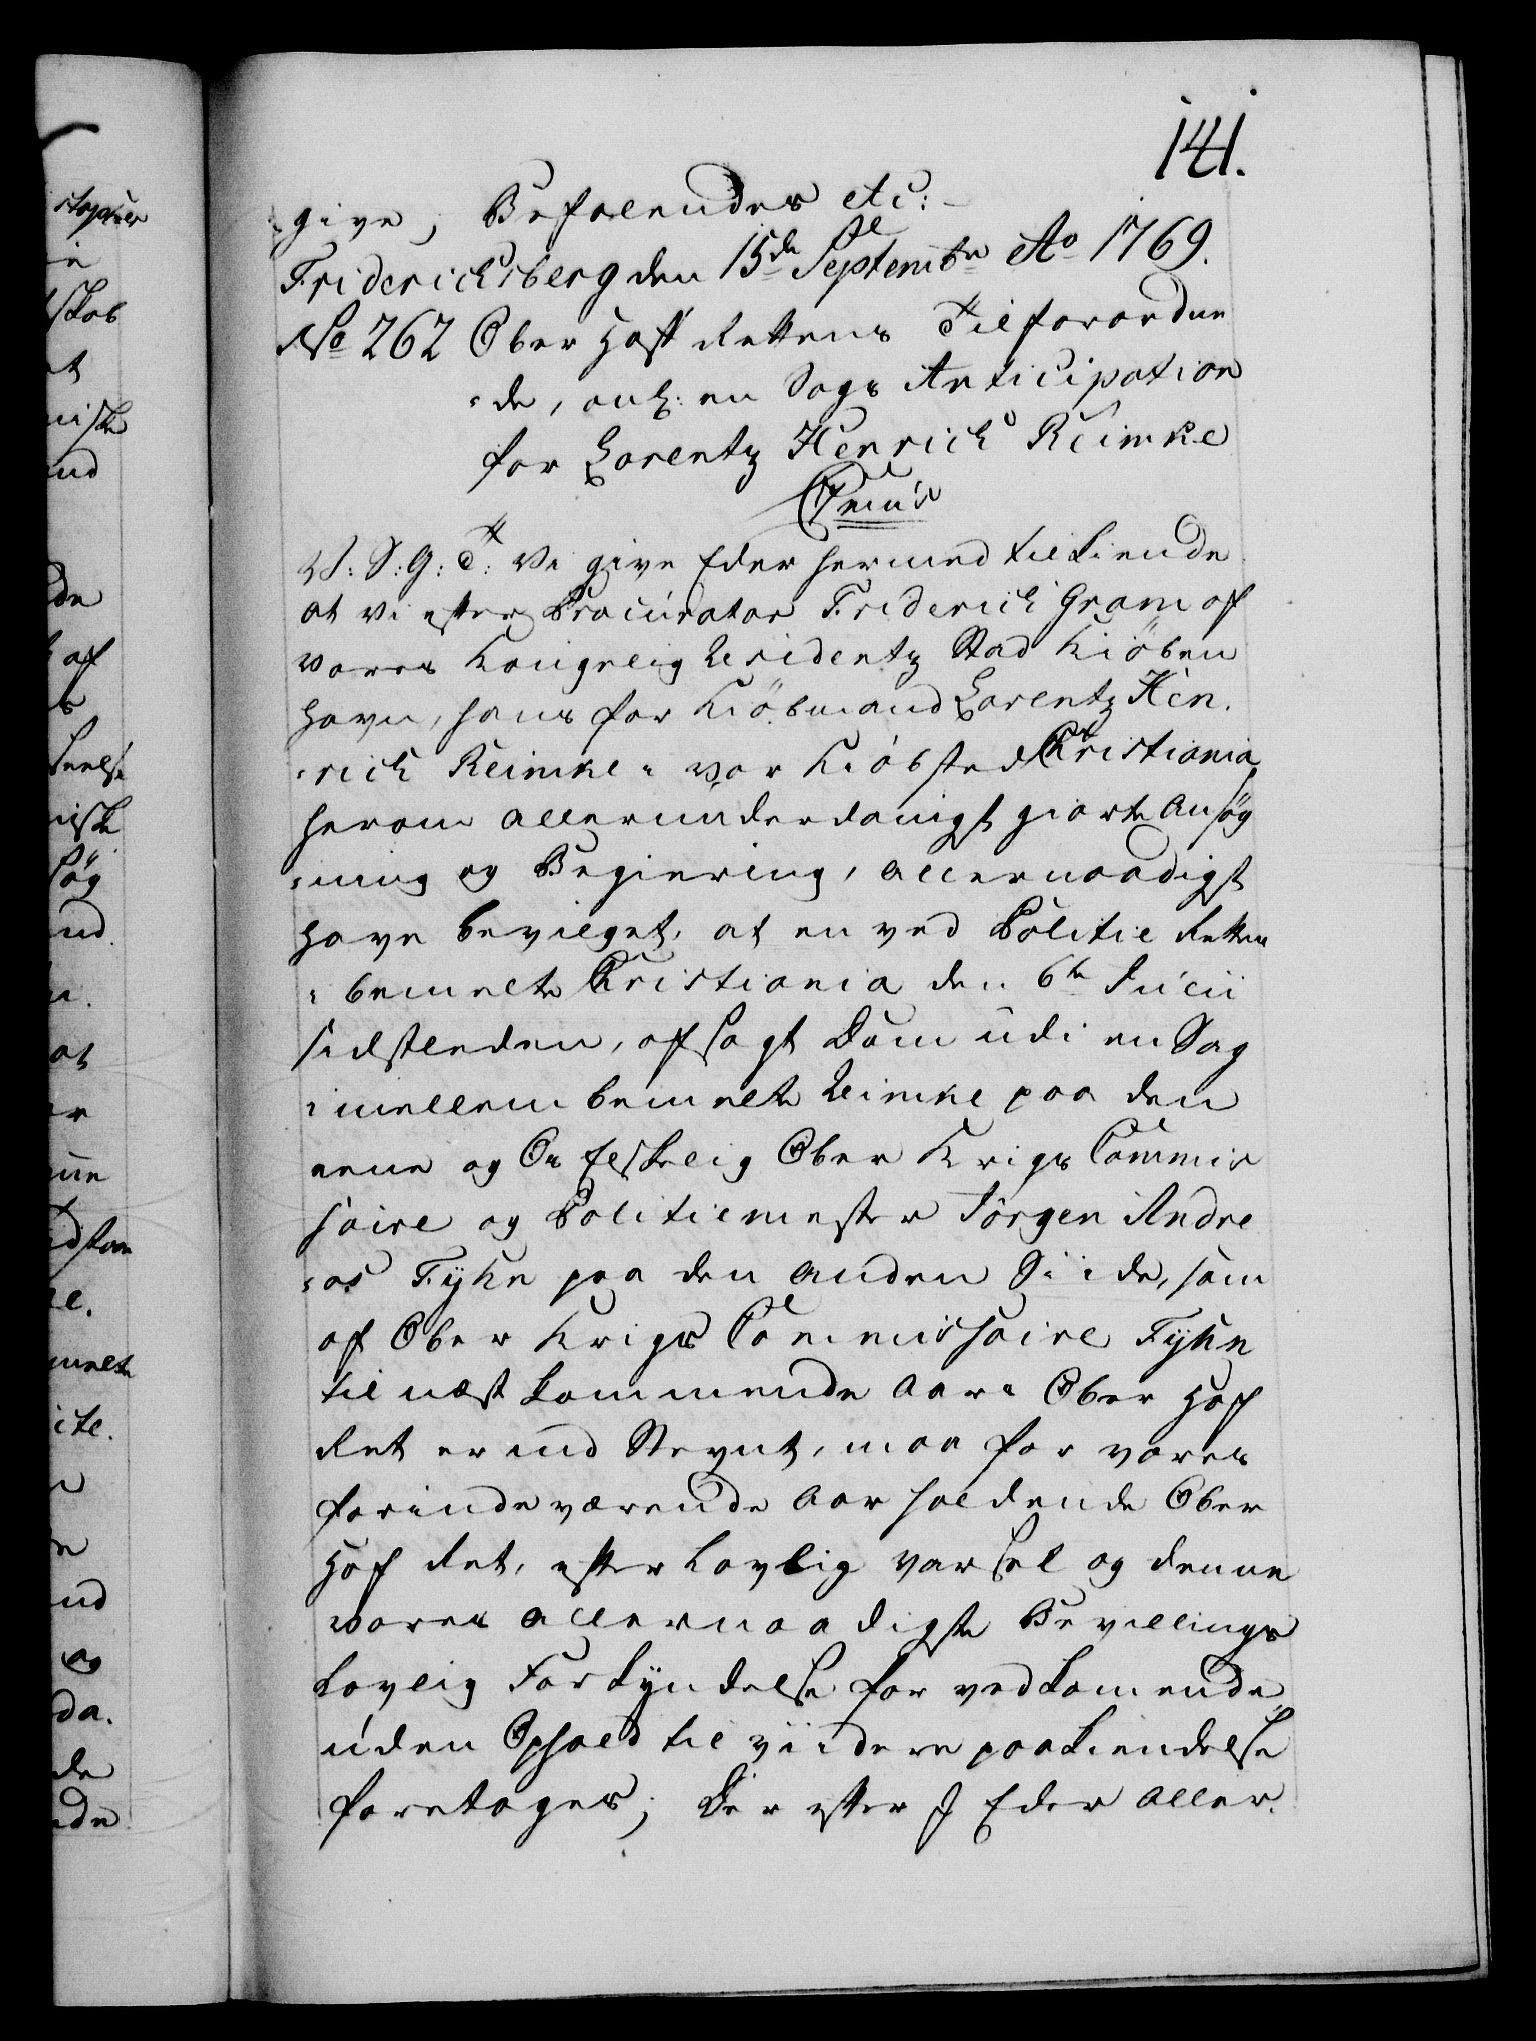 141.
give; Befalendes etc:
Friderichsberg den 15de Septembr Ao 1769.
No 262 Ober Hoff Rettens Tilforordne
de, ang: en Sags Anticipation
for Lorentz Henrich Reimke
Cḥris
V: S: G: T: Vi give Eder hermed tilkiende
at vi efter Procurator Friderich Gram af
vores Kongelig Residentz Stad Kiöben
havn, hans for Kiöbmand Lorentz Hen-
rich Reimke i vor Kiöbsted Christiania
herom allerunderdanigst giorte Ansög
ning og Begiering, allernaadigst
have bevilget, at en ved Politie Retten
i bemelte Christiania den 6te Julii
sidstleden, afsagt Dom udi en Sag
imellem bemelte Reimke paa den
eene og Os Elskelig Ober Krigs Commis
saire og Politiemester Jörgen Andre
as Fyhn paa den anden Siide, som
af Ober Krigs Commissaire Fyhn
til næst kommende Aars Ober Hof
Ret er ind Stevnt, maa for vores
for indeværende Aar holdende Ober
Hof Ret, efter Lovlig Varsel og denne
vores allernaadigste Bevillings
Lovlig Forkyndelse for vedkomende
uden Ophold til viidere paakiendelse
foretages; Der efter I Eder aller-